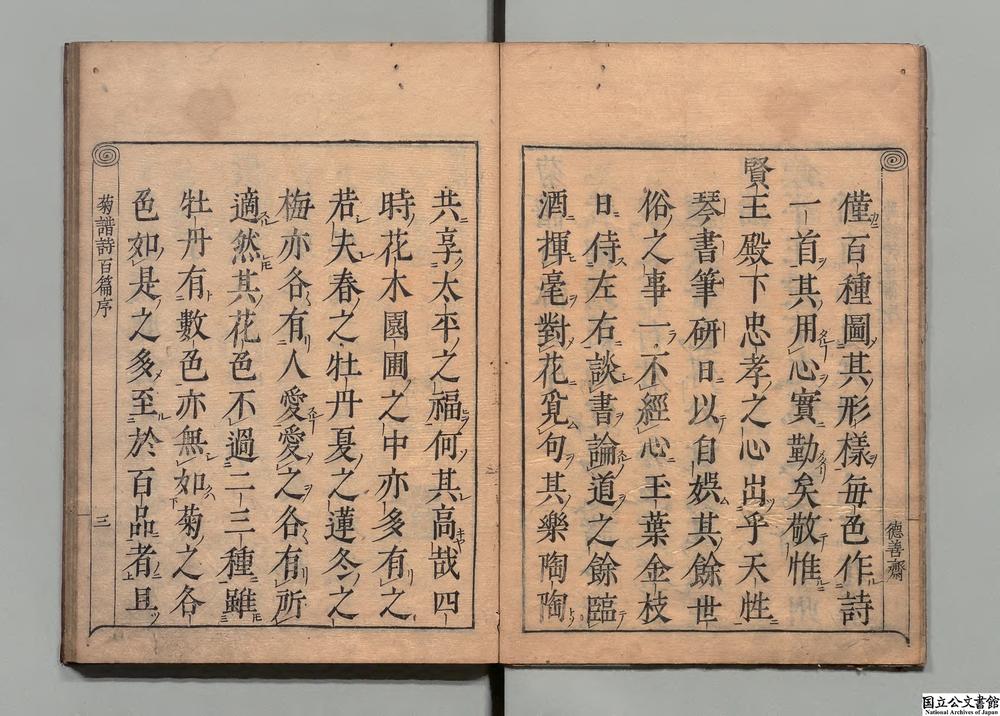 僅百種圖其形樣每色作詩
一首其用心實勤矣敬惟
賢王殿下忠孝之心出乎天性
琴書筆硏日以自娯其餘世
俗之事一不經心玉葉金枝
日侍左右談書論道之餘臨
酒揮毫對花覓句其樂陶陶
德善齋
共享太平之福何其高哉四
時花木園圃之中亦多有之
若夫春之牡丹夏之蓮冬之
梅亦各有人愛愛之各有所
適然其花色不過二三種雖
牡丹有數色亦無如菊之各
色如是之多至於百品者且
菊譜詩百篇序
三
国立公文書館
National Archives of Japan